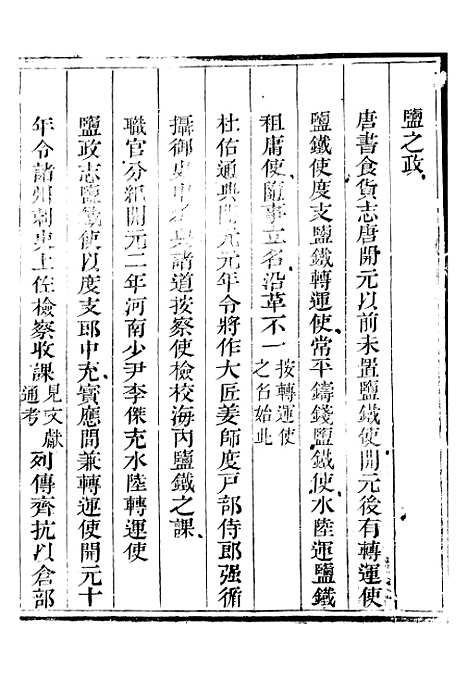 鹽之政
唐書食貨志唐開元以前未置鹽鐵使開元後有轉運使
鹽鐵使度支鹽鐵轉運使常平鑄錢鹽鐵使水陸運鹽鐵
租庸使隨事立名沿革不一按轉運使之名始此
杜佑通典開元元年令將作大匠姜師度戶部侍郎强循
攝御史中丞與諸道按察使檢校海內鹽鐵之課
職官分紀開元二年河南少尹李傑充水陸轉運使
鹽政志鹽鐵使以度支郎中充寶應間兼轉運使開元十
年令諸州刺史上佐檢察收課見文獻通考列傳齊抗以倉部